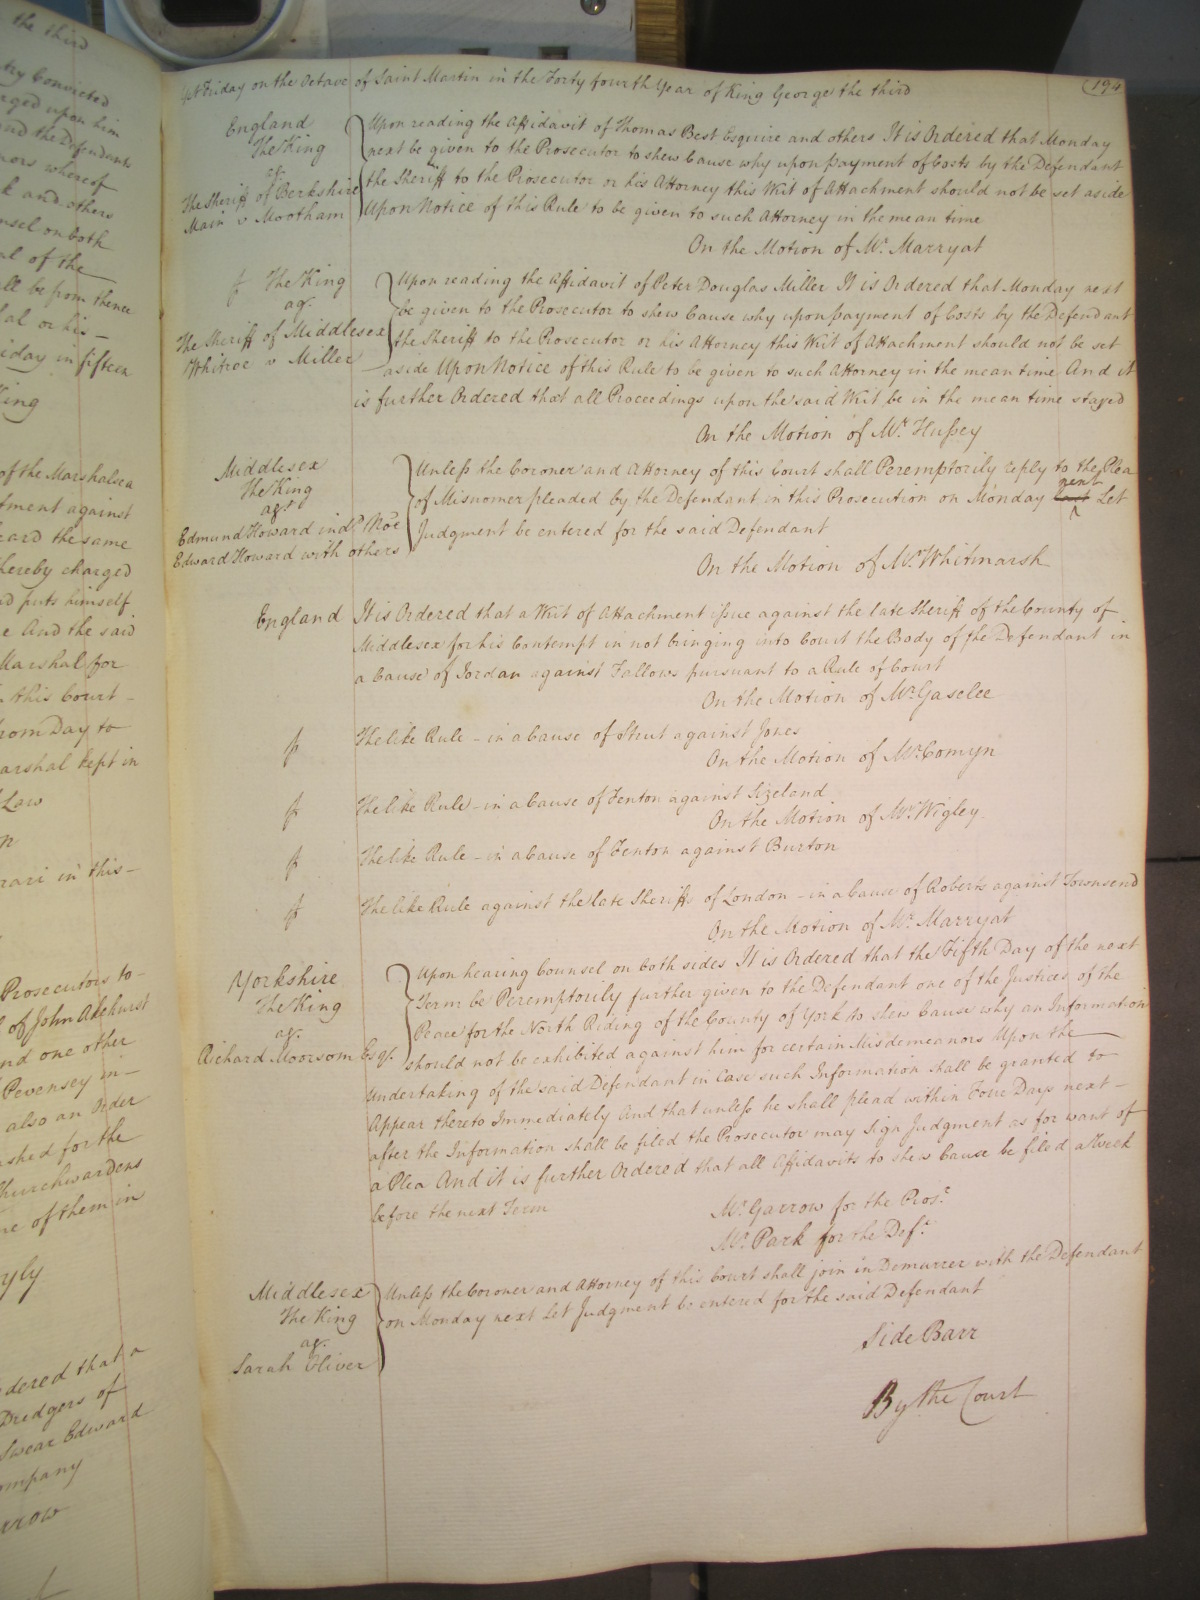 the third
try Convicted
rged upon him
and the Defendants
nors whereof
k and others
nsel on both
al of the
ll be from thence
tal or his
iday in fifteen
King
of the Marshalsea
tment against
eard the same
hereby charged
nd puts himself
e And the said
Marshal for
this Court
rom Day to
arshal kept in
Law
n
rari in this
Prosecutors to
of John Akehurst
nd one other
Pevensey in
also an Order
shed for the
Churchwardens
ne of them in
ryly
dered that a
Dredgers of
Swear Edward
ompany
rrow
Yet Friday on the Octave of Saint Martin in the Forty fourth Year of King George the third
194
England
The King
agt
The Sheriff of Berkshire
Main v Mootham
Upon reading the Affidavit of Thomas Best Esquire and others It is Ordered that Monday
next be given to the Prosecutor to shew Cause why upon payment of Costs by the Defendant
the Sheriff to the Prosecutor or his Attorney this Writ of Attachment should not be set aside
Upon Notice of this Rule to be given to such Attorney in the mean time
On the Motion of Mr. Marryat
The King
agt.
The Sheriff of Middlesex
Whitroe v Miller
Upon reading the Affidavit of Peter Douglas Miller It is Ordered that Monday next
be given to the Prosecutor to shew Cause why upon payment of Costs by the Defendant
the Sheriff to the Prosecutor or his Attorney this Writ of Attachment should not be set
aside Upon Notice of this Rule to be given to such Attorney in the mean time And it
is further Ordered that all Proceedings upon the said Writ be in the mean time stayed
On the Motion of Mr. Hussey
Middlesex
The King
agt
Edmund Howard indd. Noe
Edward Howard with others
Unless the Coroner and Attorney of this Court shall Peremptorily reply to the Plea
of Misnomer pleaded by the Defendant in this Prosecution on Monday last next Let
Judgment be entered for the said Defendant
On the Motion of Mr. Whitmarsh
England
It is Ordered that a Writ of Attachment issue against the late Sheriff of the County of
Middlesex for his Contempt in not bringing into Court the Body of the Defendant in
a Cause of Jordan against Fallows pursuant to a Rule of Court
On the Motion of Mr. Gaselee
The like Rule - in a Cause of Strut against Jones
On the Motion of Mr. Comyn
The like Rule - in a Cause of Fenton against Sizeland
On the Motion of Mr. Wigley
The like Rule - in a Cause of Fenton against Burton
The like Rule against the late Sheriffs of London - in a Cause of Roberts against Townsend
On the Motion of Mr. Marryat
Yorkshire
The King
agt.
Richard Moorsom Esqr.
Upon hearing Counsel on both sides It is Ordered that the Fifth Day of the next
Term be Peremptorily further given to the Defendant one of the Justices of the
Peace for the North Riding of the County of York to shew Cause why an Information
should not be exhibited against him for certain Misdemeanors Upon the
Undertaking of the said Defendant in Case such Information shall be granted to
Appear thereto Immediately And that unless he shall plead within Four Days next
after the Information shall be filed the Prosecutor may sign Judgment as for want of
a Plea And it is further Ordered that all Affidavits to shew Cause be filed a Week
before the next Term
Mr. Garrow for the Pros.r
Mr. Park for the Def.t
Middlesex
The King
agt.
Sarah Oliver
Unless the Coroner and Attorney of this Court shall join in Demurrer with the Defendant
on Monday next Let Judgment be entered for the said Defendant
Side Barr
By the Court